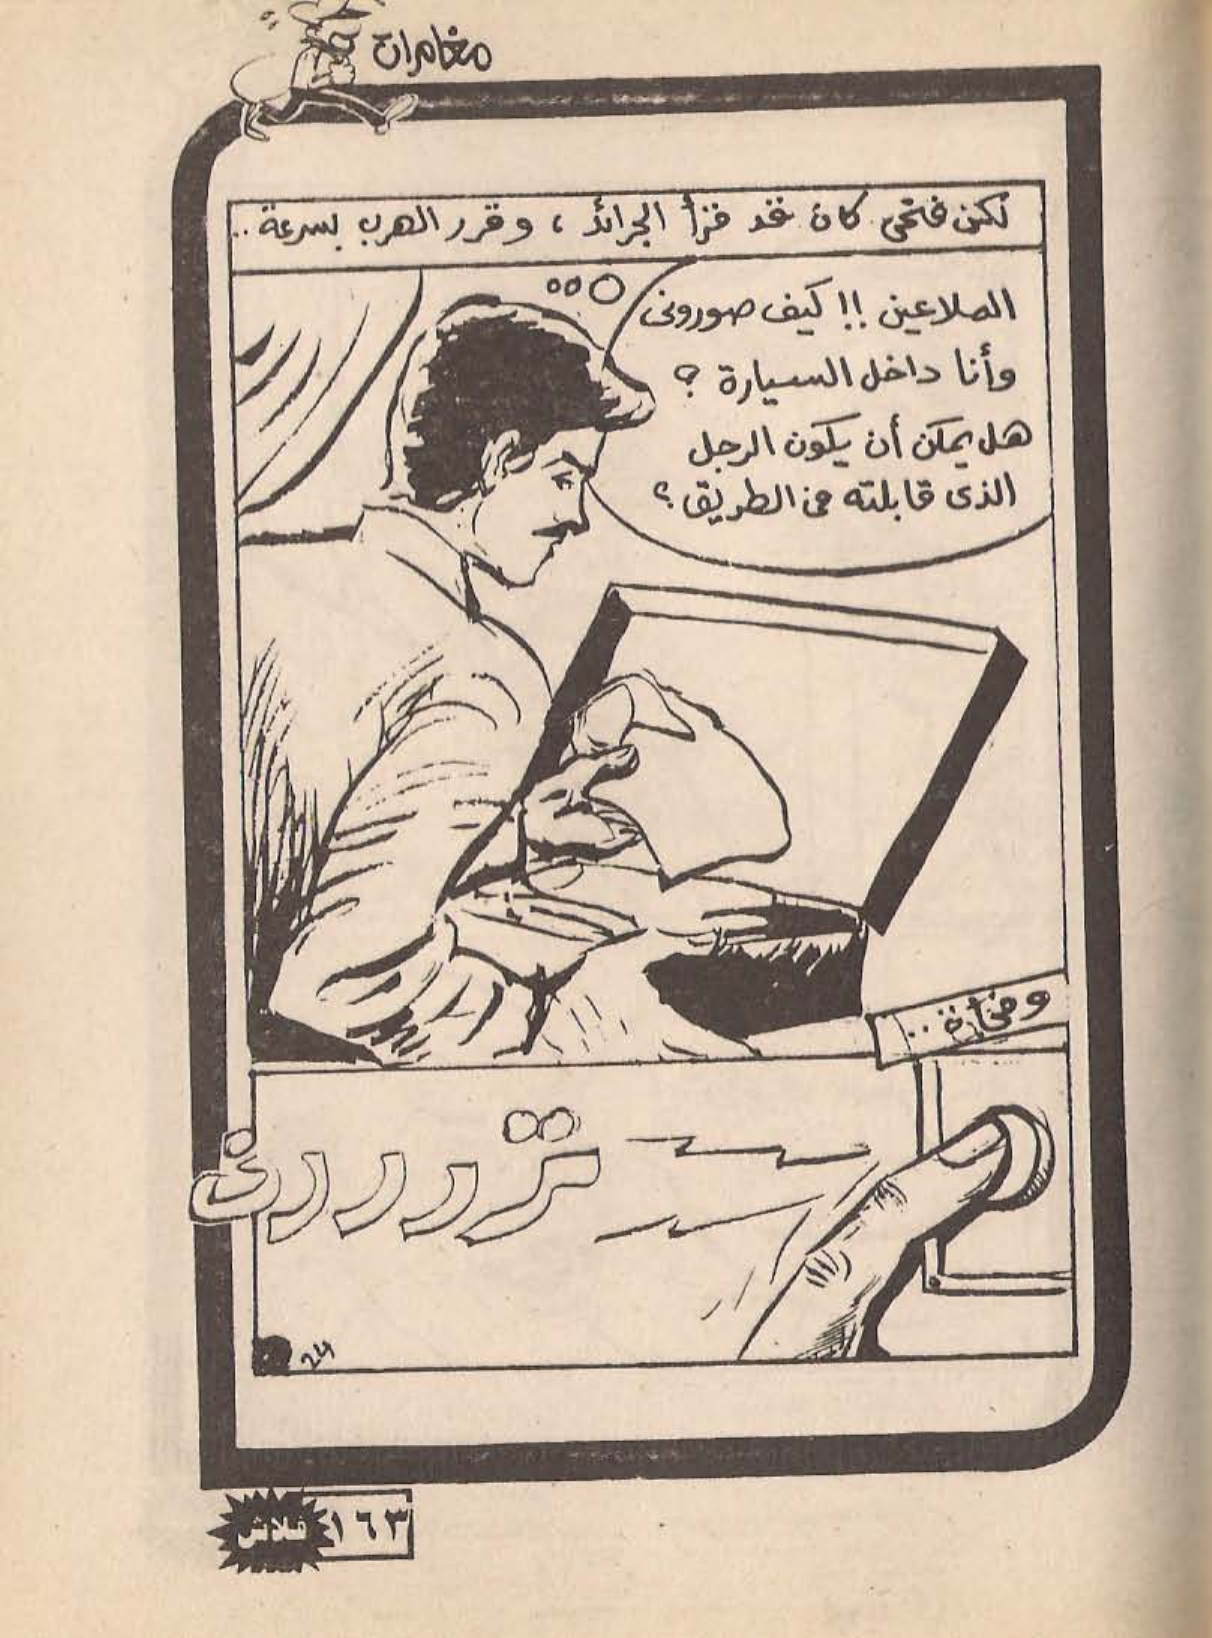 مغامرات
لكن فتحى كان قد قرأ الجرائد ، وقرر الهرب بسرعة ..
الملاعين !! كيف صورونى
وأنا داخل السيارة ؟
هل يمكن أن يكون الرجل
الذى قابلته فى الطريق ؟
وفجأة ..
تررررن
24
١٦٣
فلاش